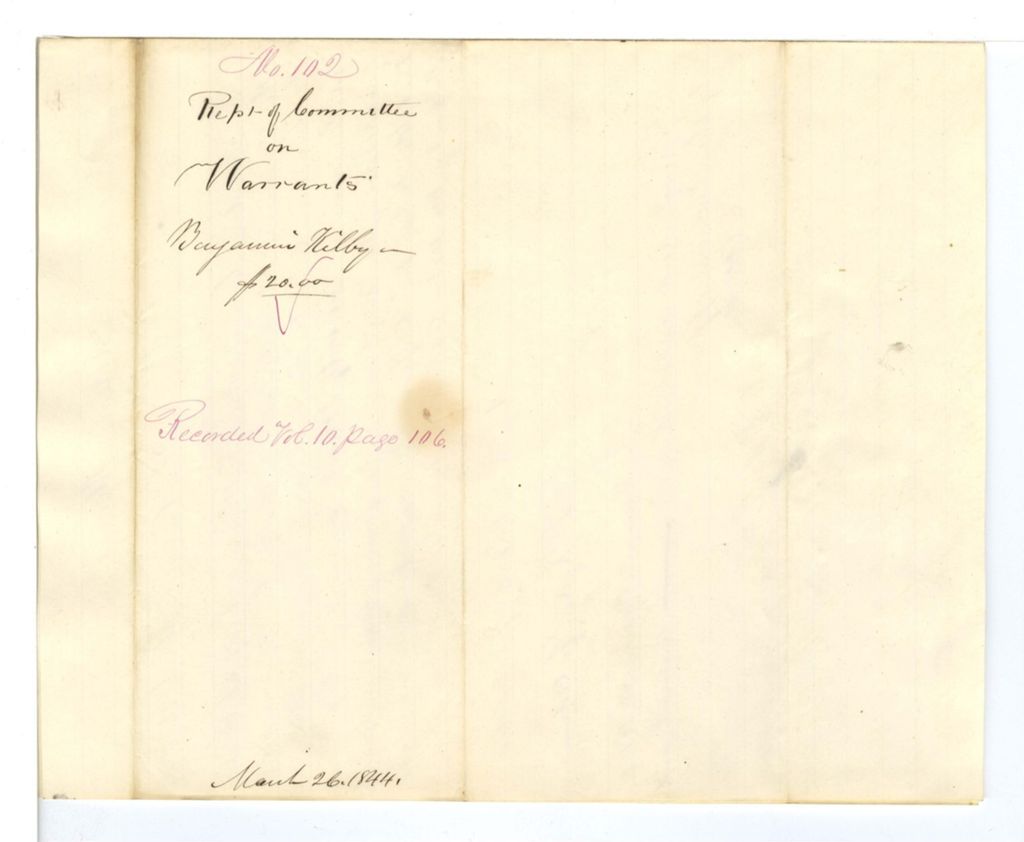 No. 102
Rept of Committee
on
Warrants
Benjamin Kilby
$20.00
Recorded Vol. 10. page 106.
March 26. 1844.